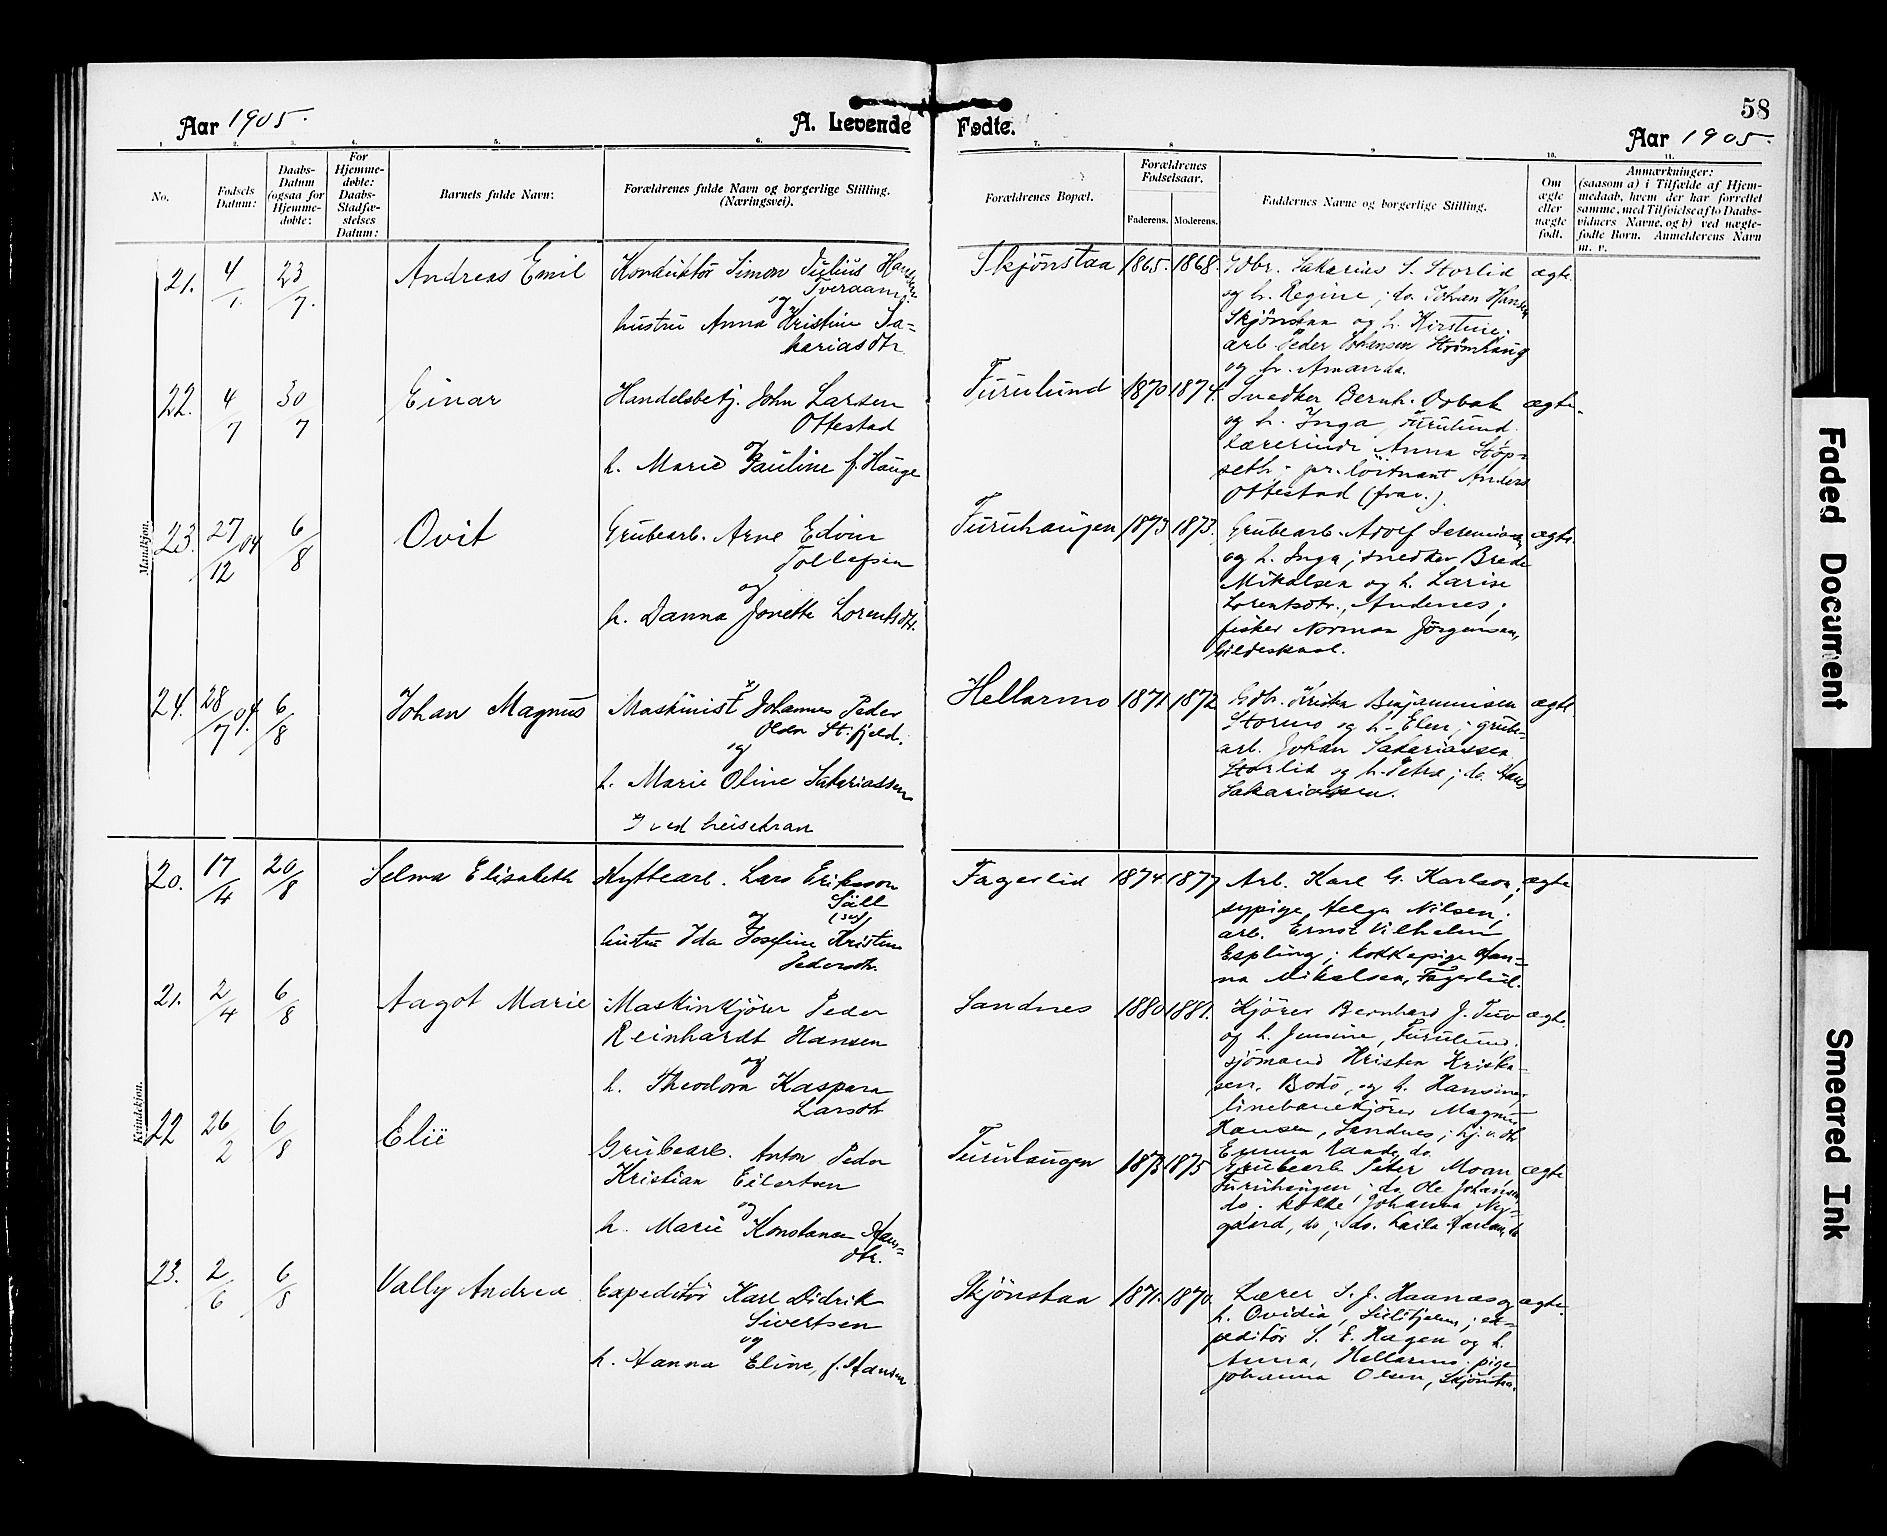 Aar 1905.
A. Levende
Fødte.
58
Aar 1905.
1.
2.
3.
4.
5.
6.
7.
8
9
10.
11.
No.
Fødsels
Datum:
Daabs-
Datum
(ogsaa for
Hjemme-
døbte:
For
Hjemme-
døbte:
Daabs-
Stadfæ-
stelses
Datum:
Barnets fulde Navn:
Forældrenes fulde Navn og borgerlige Stilling.
(Næringsvei).
Forældrenes Bopæl.
Forældrenes
Fødselsaar.
Faderens.
Moderens.
Faddernes Navne og borgerlige Stilling.
Om
ægte
eller
uægte
født.
Anmærkninger:
(saasom a) i Tilfælde af Hjem-
medaab, hvem der har forrettet
samme, med Tilføielse af to Daabs-
vidners Navne, og b) ved uægte-
fødte Børn. Anmelderens Navn
m. v.
Mandkjøn.
21. 4/1. 23/7. Andreas Emil
Konduktør Simon Julius Hansen
Tveraamo
og
hustru Anna Kristine Sa-
kariasdtr.
Skjönstaa 1865. 1868.
Gbr. Sakarias S. Storlid
og h. Regine; do. Johan Hansen
Skjönstaa og h. Kirstine.
arb. Peder Johansen Strömhaug
og h. Amanda.
ægte.
22. 4/7 30/7 Einar
Handelsbetj. John Larsen
Ottestad
og
h. Marie Pauline f. Hauge
Furulund 1870 1874.
Snedker Bernh. Osbak
og h. Inga, Furulund.
lærerinde Anna Stöp-
seth; pr. löitnant Anders
Ottestad (frav.).
ægte.
23. 27/12 04 6/8 Ovit
Grubearb. Arne Edvin
Tollefsen
og
h. Danna Jonette Lorentsdtr.
Furuhaugen 1873 1873.
Grubearb. Adolf
og h. Inga; snedker Brede
Mikalsen og h. Larise
Lorentsdtr., Andenes;
fisker Norman Jörgensen,
Gildeskaal.
ægte.
24. 28/7 04. 6/8 Johan Magnus
Maskinist x Johannes Peder
Olsen St.fjeld.
og
h. Marie Oline Sakariassen
x) ved heisekran
Hellarmo 1871 1872
Gbr. Kristen Benjaminsen
Stormo og h. Elen; grube-
arb. Johan Sakariassen
Storlid og h. Petra; do. Hans
Sakariassen.
ægte.
Kvindekjøn.
20. 17/4 20/8 Selma Elisabeth
Hyttearb. Lars Eriksson
Säll
og (sv)
hustru Ida Josefine Kristine
Pedersdtr.
Fagerlid 1874 1877
Arb. Karl G. Karlson;
sypige Helga Nilsen;
arb. Ernst Vilhelm
Espling; kokkepige Han-
na Mikalsen, Fagerlid.
ægte
21. 2/4 6/8 Aagot Marie
Maskinkjörer Peder
Reinhardt Hansen
og
h. Theodora Kaspara
Larsdtr.
Sandnes 1880 1881.
Kjörer Bernhard J. Tuv
og h. Jensine, Furulund.
sjömand Kristen Kristen-
sen, Bodö, og h. Hansine,
linebanekjörer Magnus
Hansen, Sandnes;
Emma
ægte.
22 26/2 6/8 Elie
Grubearb. Anton Peder
Kristian Eilertsen
og
h. Marie Konstanse Hans-
dtr.
Furuhaugen 1873 1875
Grubearb. Peter Moan
Furuhaugen; do. Ole Johansen,
do. kokke Johanna Ny-
gaard, do.; do. Laila
ægte
23. 2/6 6/8 Vally Andrea
Expeditör Karl Didrik
Sivertsen
og
h. Hanna Eline, f. Hansen
Skjönstaa 1871. 1870.
Lærer S. J. Haanæs og
h. Ovidia, Sulitjelma; ex-
peditör S. E. Hagen og h.
Anna, Hellarmo; pige
Johanna Olsen, Skjönstaa.
ægte.
Faded Document
Smeared Ink